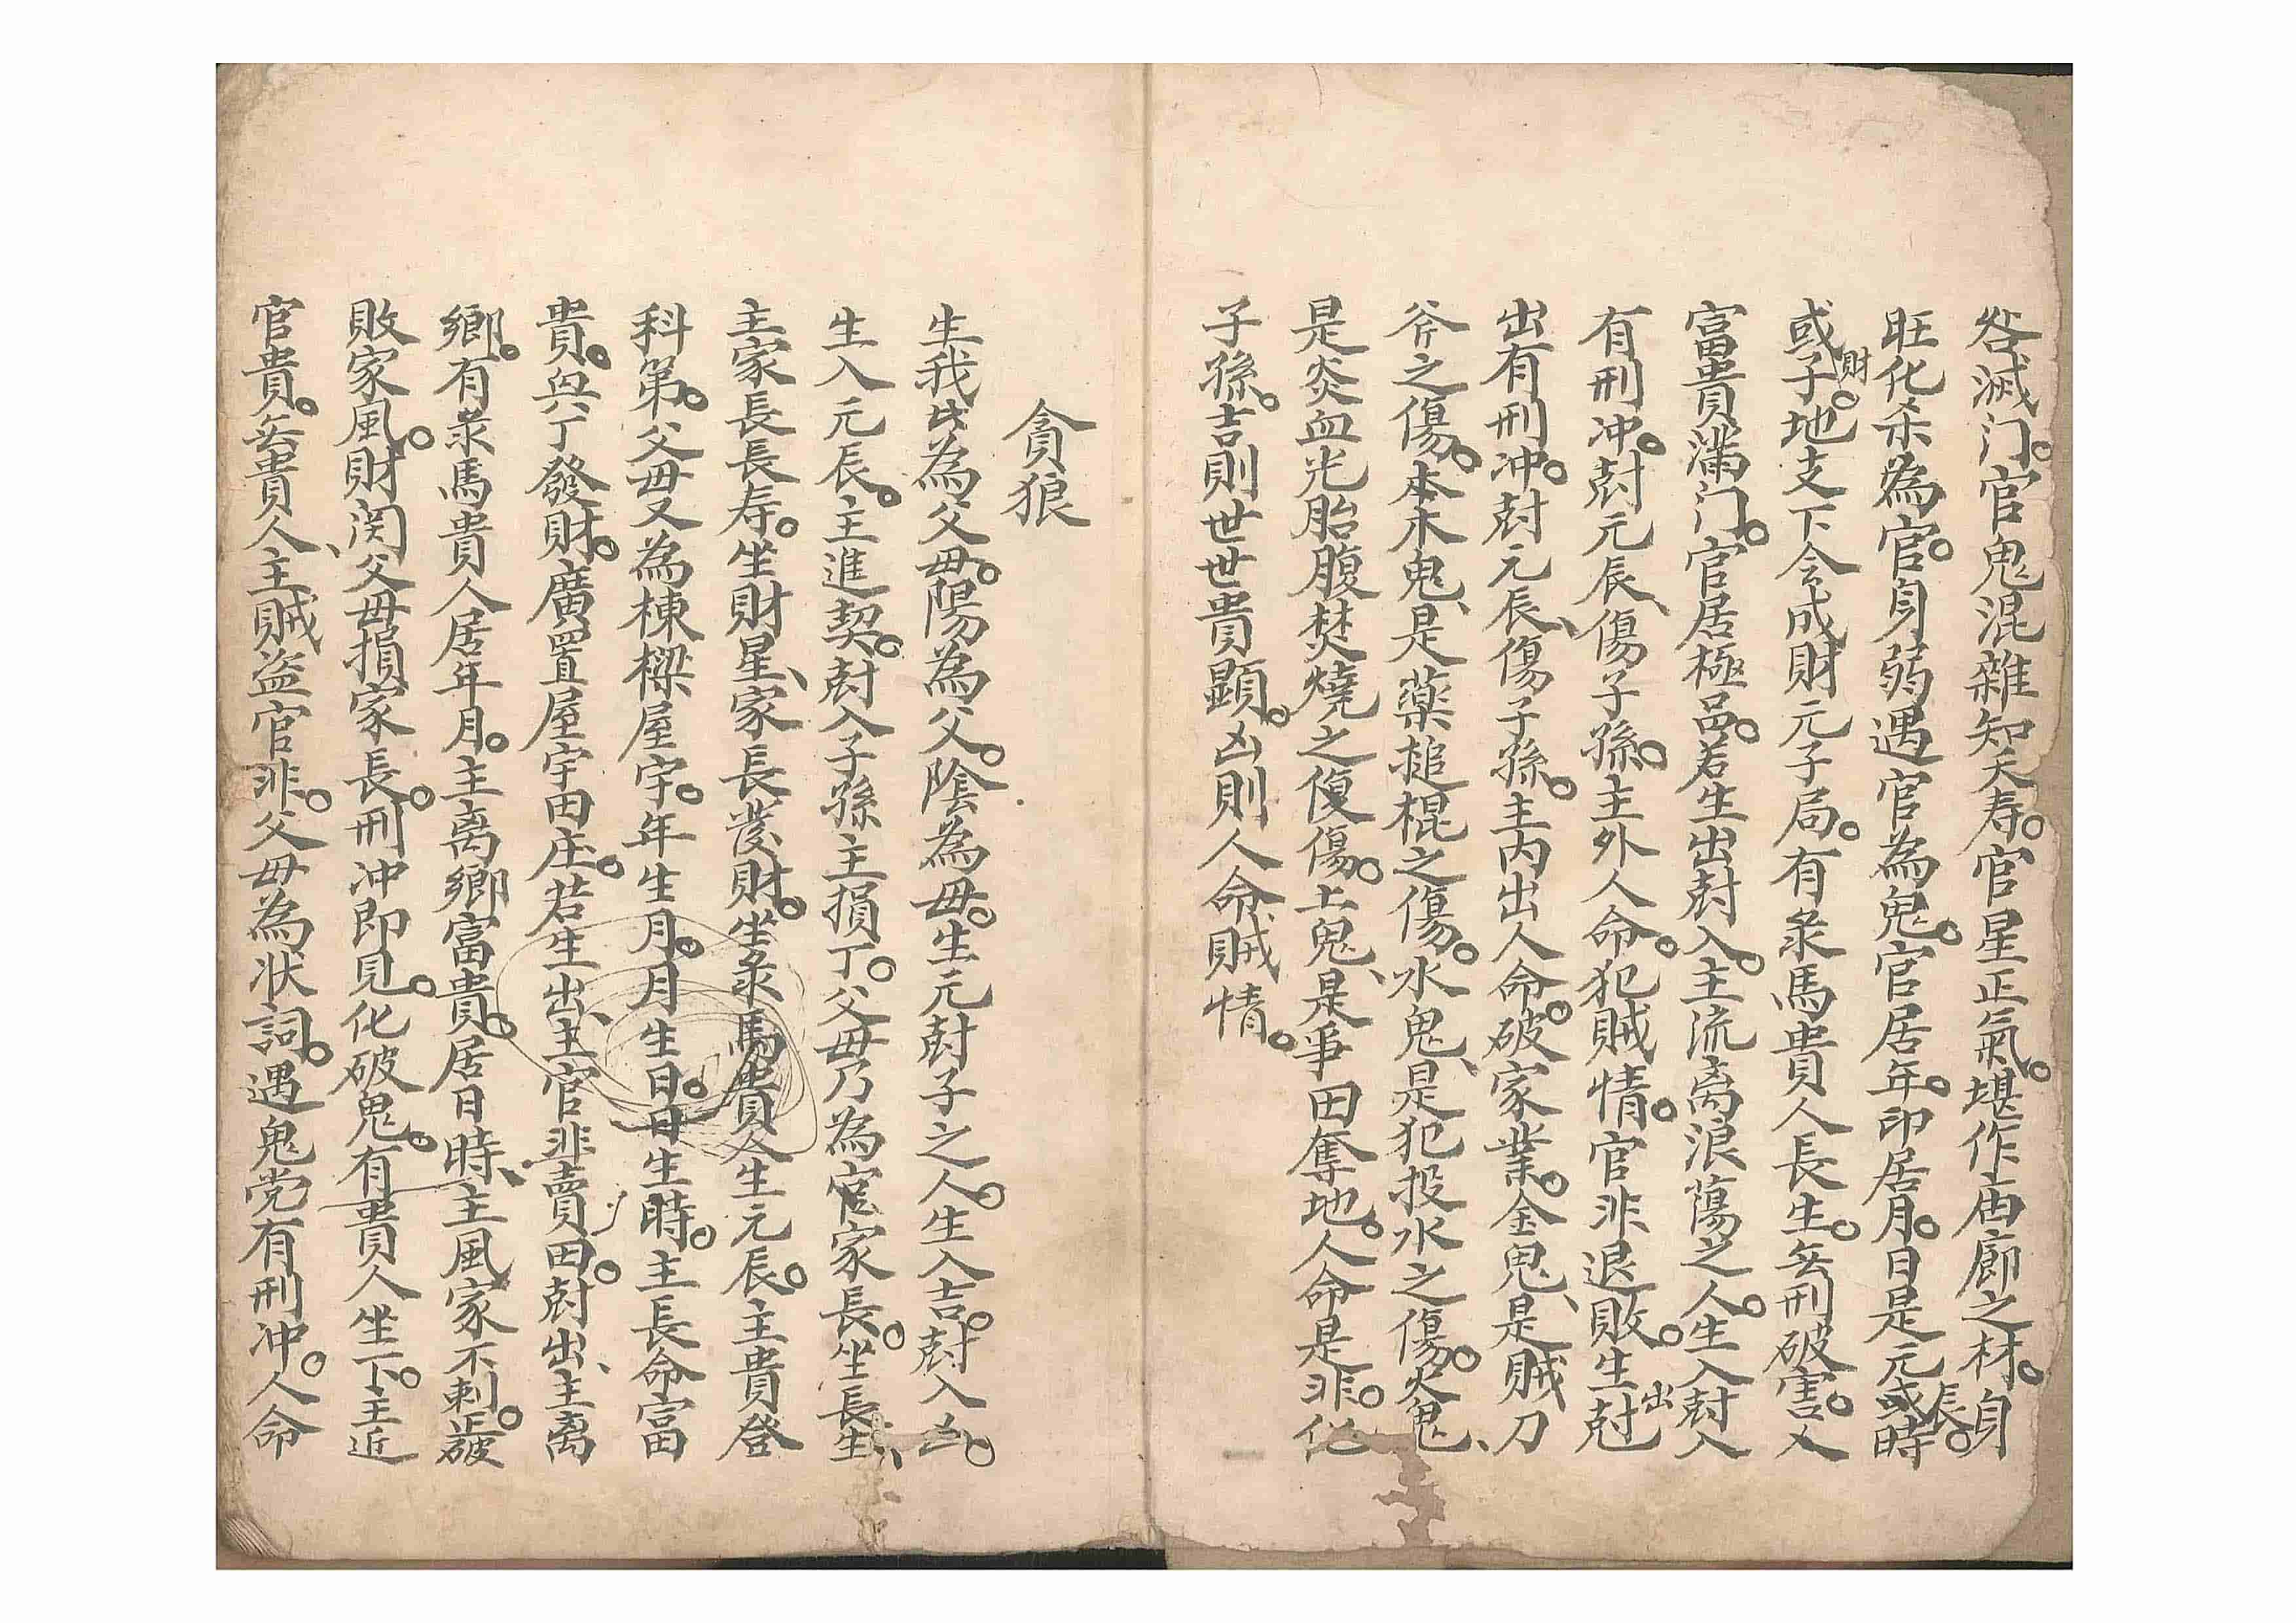 咎滅门。官鬼混雜知夭寿。官星正氣。堪作庙廊之材。身
旺化杀為官。身弱遇官為鬼。官居年。印居月。日是元辰。或時
或子財。地支下会成財元子局。有彔馬貴人長生。无刑破害。又
富貴滿门。官居極品。若生出尅入。主流离浪蕩之人。生入尅入
有刑冲。尅元辰、傷子孫。主外人命。犯賊情。官非退敗。生出尅
出有刑冲。尅元辰、傷子孫。主内出人命。破家業。金鬼、是賊刀
斧之傷。本木鬼、是藥搥棍之傷。水鬼、是犯投水之傷。火鬼、
是炎血光胎腹焚燒之傷。土鬼、是爭田奪地。人命是非。化
子孫。吉則世世貴顕。凶則人命賊情。
貪狼
生我者為父母。陽為父。陰為母。生元尅子之人。生入吉。尅入凶。
生入元辰。主進契。尅入子孫主損丁。父母乃為官家長。坐長生、
主家長長寿。坐財星、家長發財。坐彔馬貴人生元辰。主貴登
科第。父母又為棟樑屋宇。年生月。月生日。日生時。主長命富
貴。與丁發財。廣置屋宇田庄。若生出、主官非賣田。尅出、主离
鄉。有彔馬貴人居年月。主离鄉富貴。居日時、主風家不剌。破
敗家風。財関父母損家長。刑冲即見。化破鬼。有貴人坐下。主近
官貴。无貴人、主賊盗官非。父母為状詞。遇鬼党有刑冲。人命